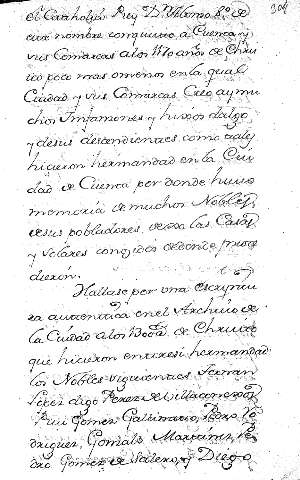 304
el Catholico Rey Dn Alonso 8o. de
este nombre conquisto a Cuenca y
sus Comarcas a los 1170 años de Chris
to poco mas o menos en la qual
Ciudad y sus Comarcas Creo ay mu
chos Infanzones y hijos dalgo
y de sus descendientes como tales
hicieron hermandad en la Ciu
dad de Cuenca por donde huvo
memoria de muchos Nobles
de sus pobladores, de las Casas
y solares conozidos de donde proce
dieron.
Hallase por una escriptu
ra autentica en el Archivo de
la Ciudad a los de Christo
que hicieron entre si hermandad
los Nobles siguientes
digo Perez de Villa
Rui Gomez Gallinato, Pedro Ro
driguez, Gonzalo Martinez, Pe
dro Gomez de Valero, y Diego